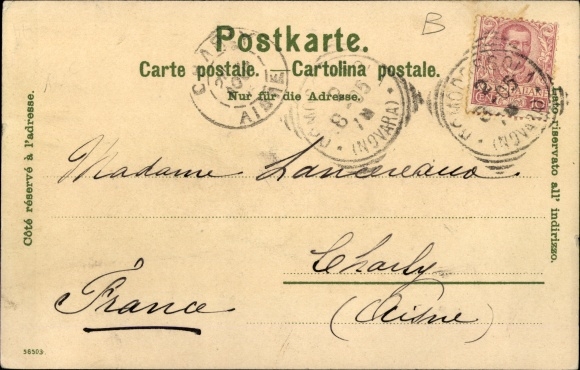 B
Postkarte.
Carte postale. — Cartolina postale.
Nur für die Adresse.
Côté réservé à l'adresse.
Lato riservato all' indirizzo.
CHARLY
AISNE
(NOVARA)
(NOVARA)
Madame Lancereaux.
Charly
(Aisne)
France
56503